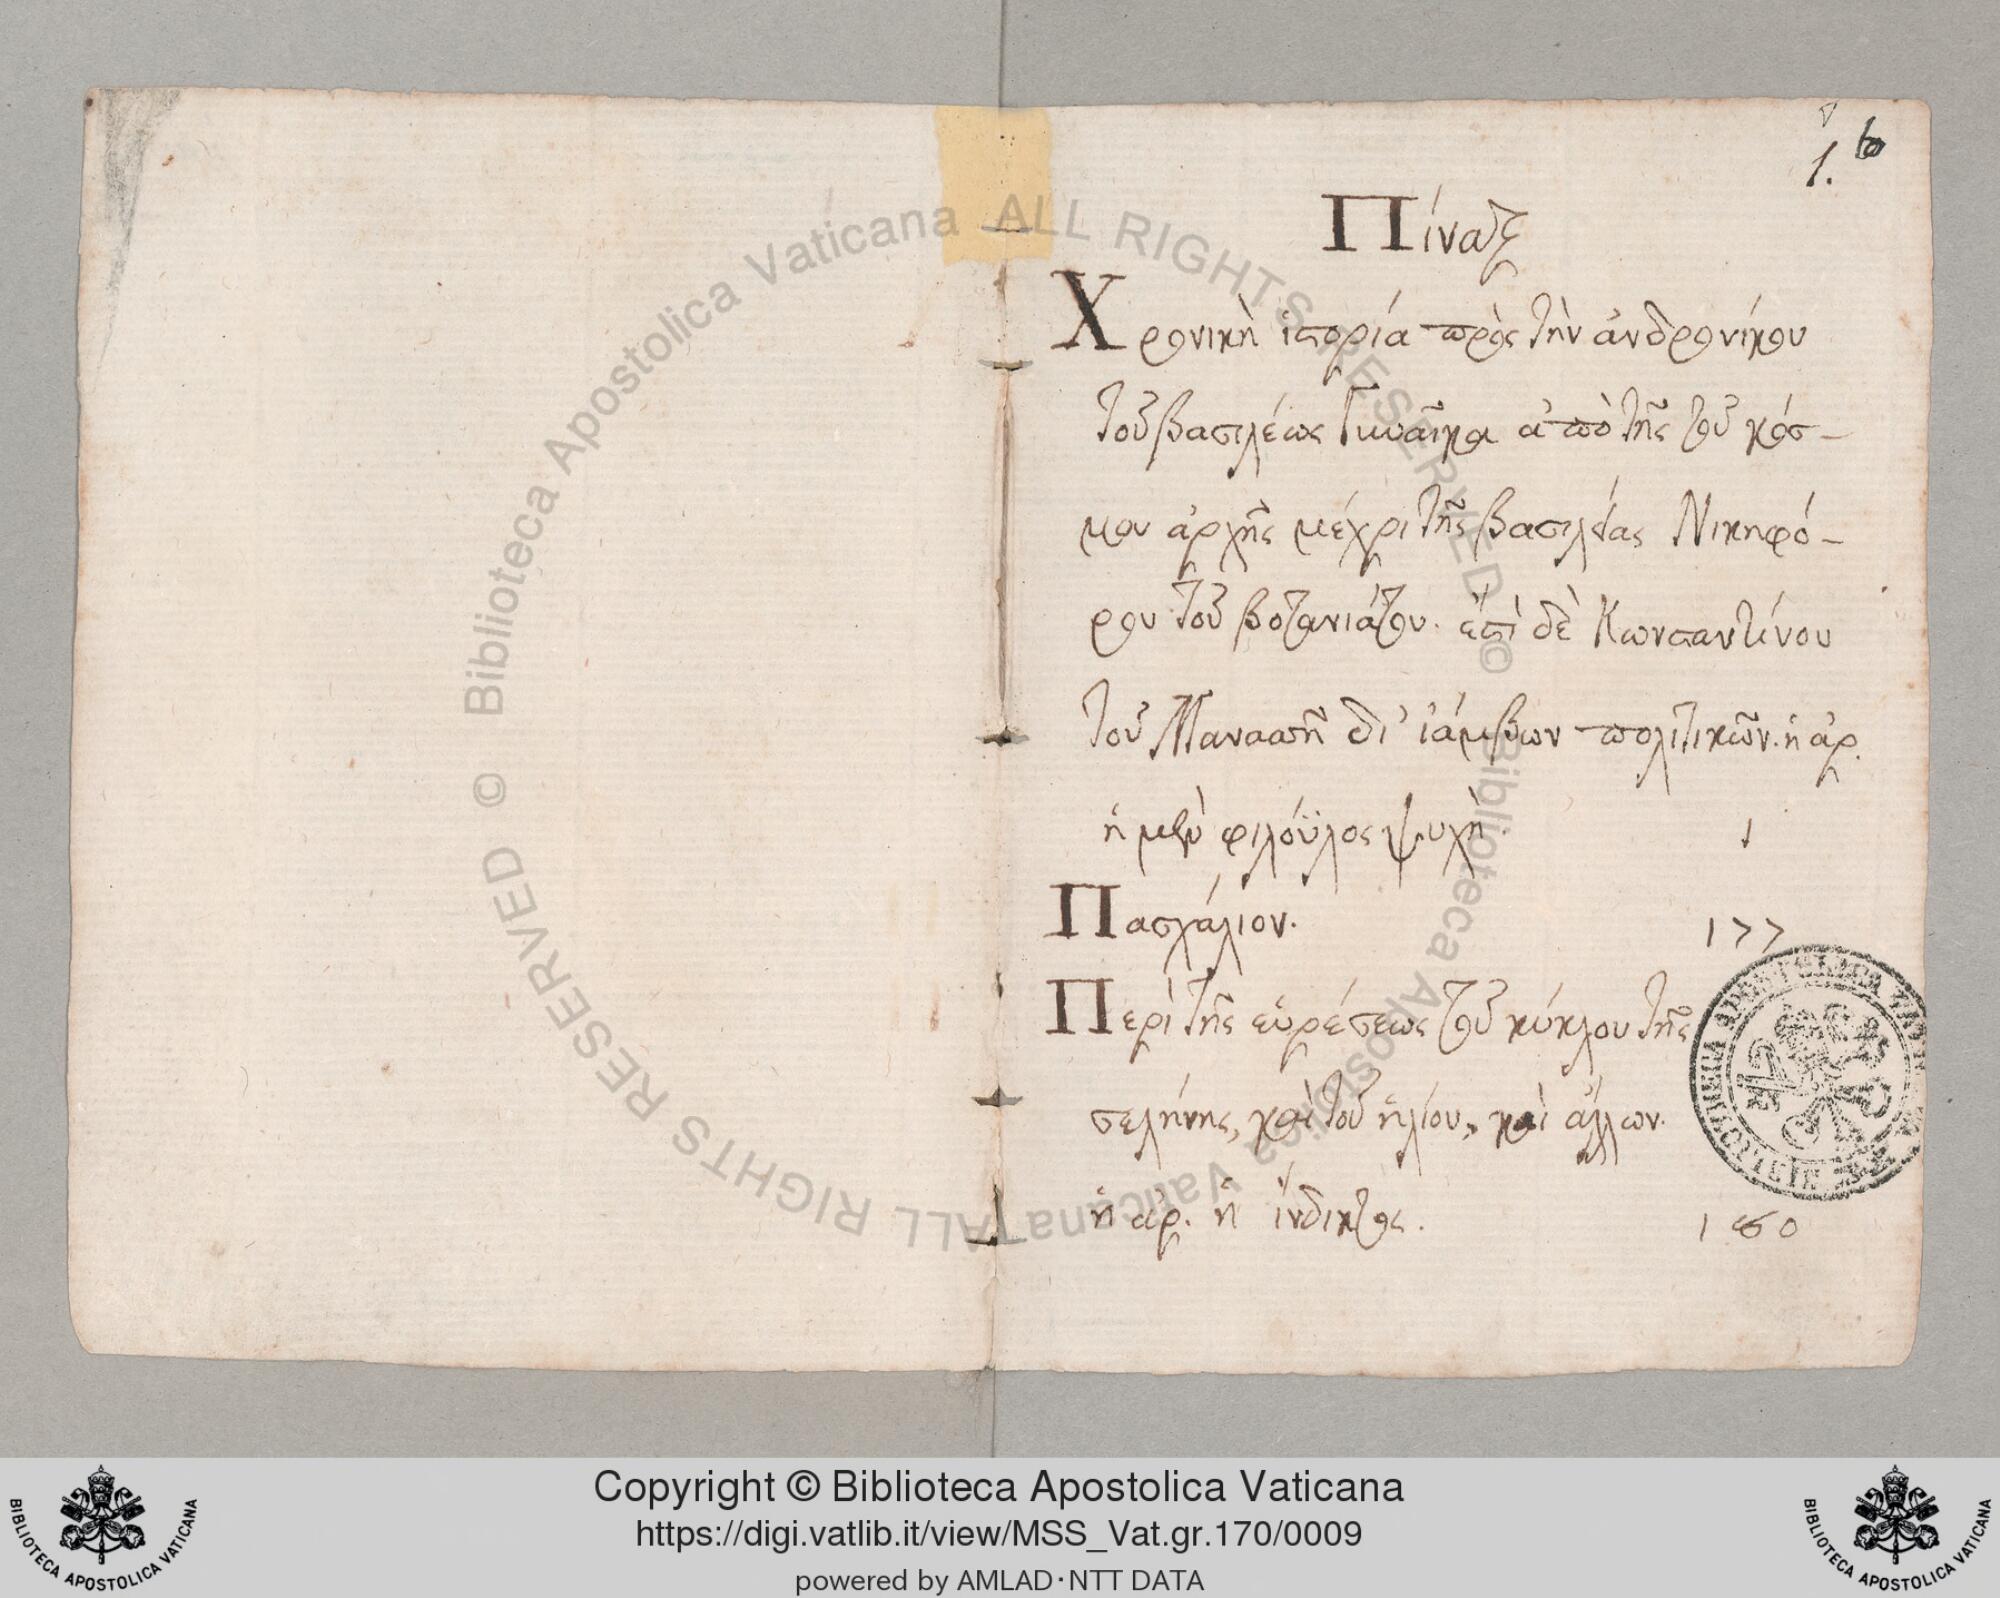 1. b
Πίναξ
Χρονικὴ ἱστορία πρὸς τὴν ἀνδρονίκου
τοῦ βασιλέως γυναῖκα ἀπὸ τῆς τοῦ κόσ-
μου ἀρχῆς μέχρι τῆς βασιλείας Νικηφό-
ρου τοῦ βοτανιάτου. ἔστι δὲ Κωνσταντίνου
τοῦ Μανασσῆ δι' ἰάμβων πολιτικῶν. ἡ ἀρ.
ἡ μὲν φιλόϋλος ψυχὴ 1
Πασχάλιον. 177
Περὶ τῆς εὑρέσεως τοῦ κύκλου τῆς
σελήνης, καὶ τοῦ ἡλίου, καὶ ἄλλων.
ἡ ἀρ. ἡ ἴνδικτος. 180
Biblioteca Apostolica Vaticana ALL RIGHTS RESERVED © Biblioteca Apostolica Vaticana ALL RIGHTS RESERVED ©
Copyright © Biblioteca Apostolica Vaticana
https://digi.vatlib.it/view/MSS_Vat.gr.170/0009
powered by AMLAD·NTT DATA
BIBLIOTECA APOSTOLICA VATICANA
BIBLIOTECA APOSTOLICA VATICANA